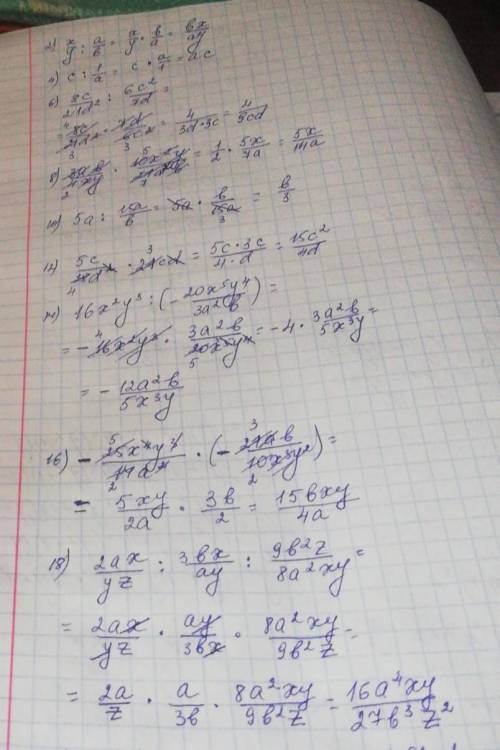 2) x/y : a/b = x/y · b/a = bx/ay
4) c : 1/a = c · a/1 = a·c
6) 8c/21d² : 6c²/7d =
= 8c/21d² · 7d/6c² = 4/3d·3c = 4/9cd
= 1/2 · 5x/7a = 5x/14a
10) 5a : 15a/b = 5a · b/15a = b/3
12) · 21cd = 5c·3c/4·d = 15c²/4d
14) 16x²y³ : (- 20x⁵y⁴/3a²b) =
= - 16x²y³ · 3a²b/20x⁵y⁴ = -4 · 3a²b/5x³y =
= - 12a²b/5x³y
16) =
= 5xy/2a · 3b/2 = 15bxy/4a
18) 2ax/yz : 3bx/ay : 9b²z/8a²xy =
= 2ax/yz · ay/3bx · 8a²xy/9b²z =
= 2a/z · a/3b · 8a²xy/9b²z = 16a⁴xy/27b³z²